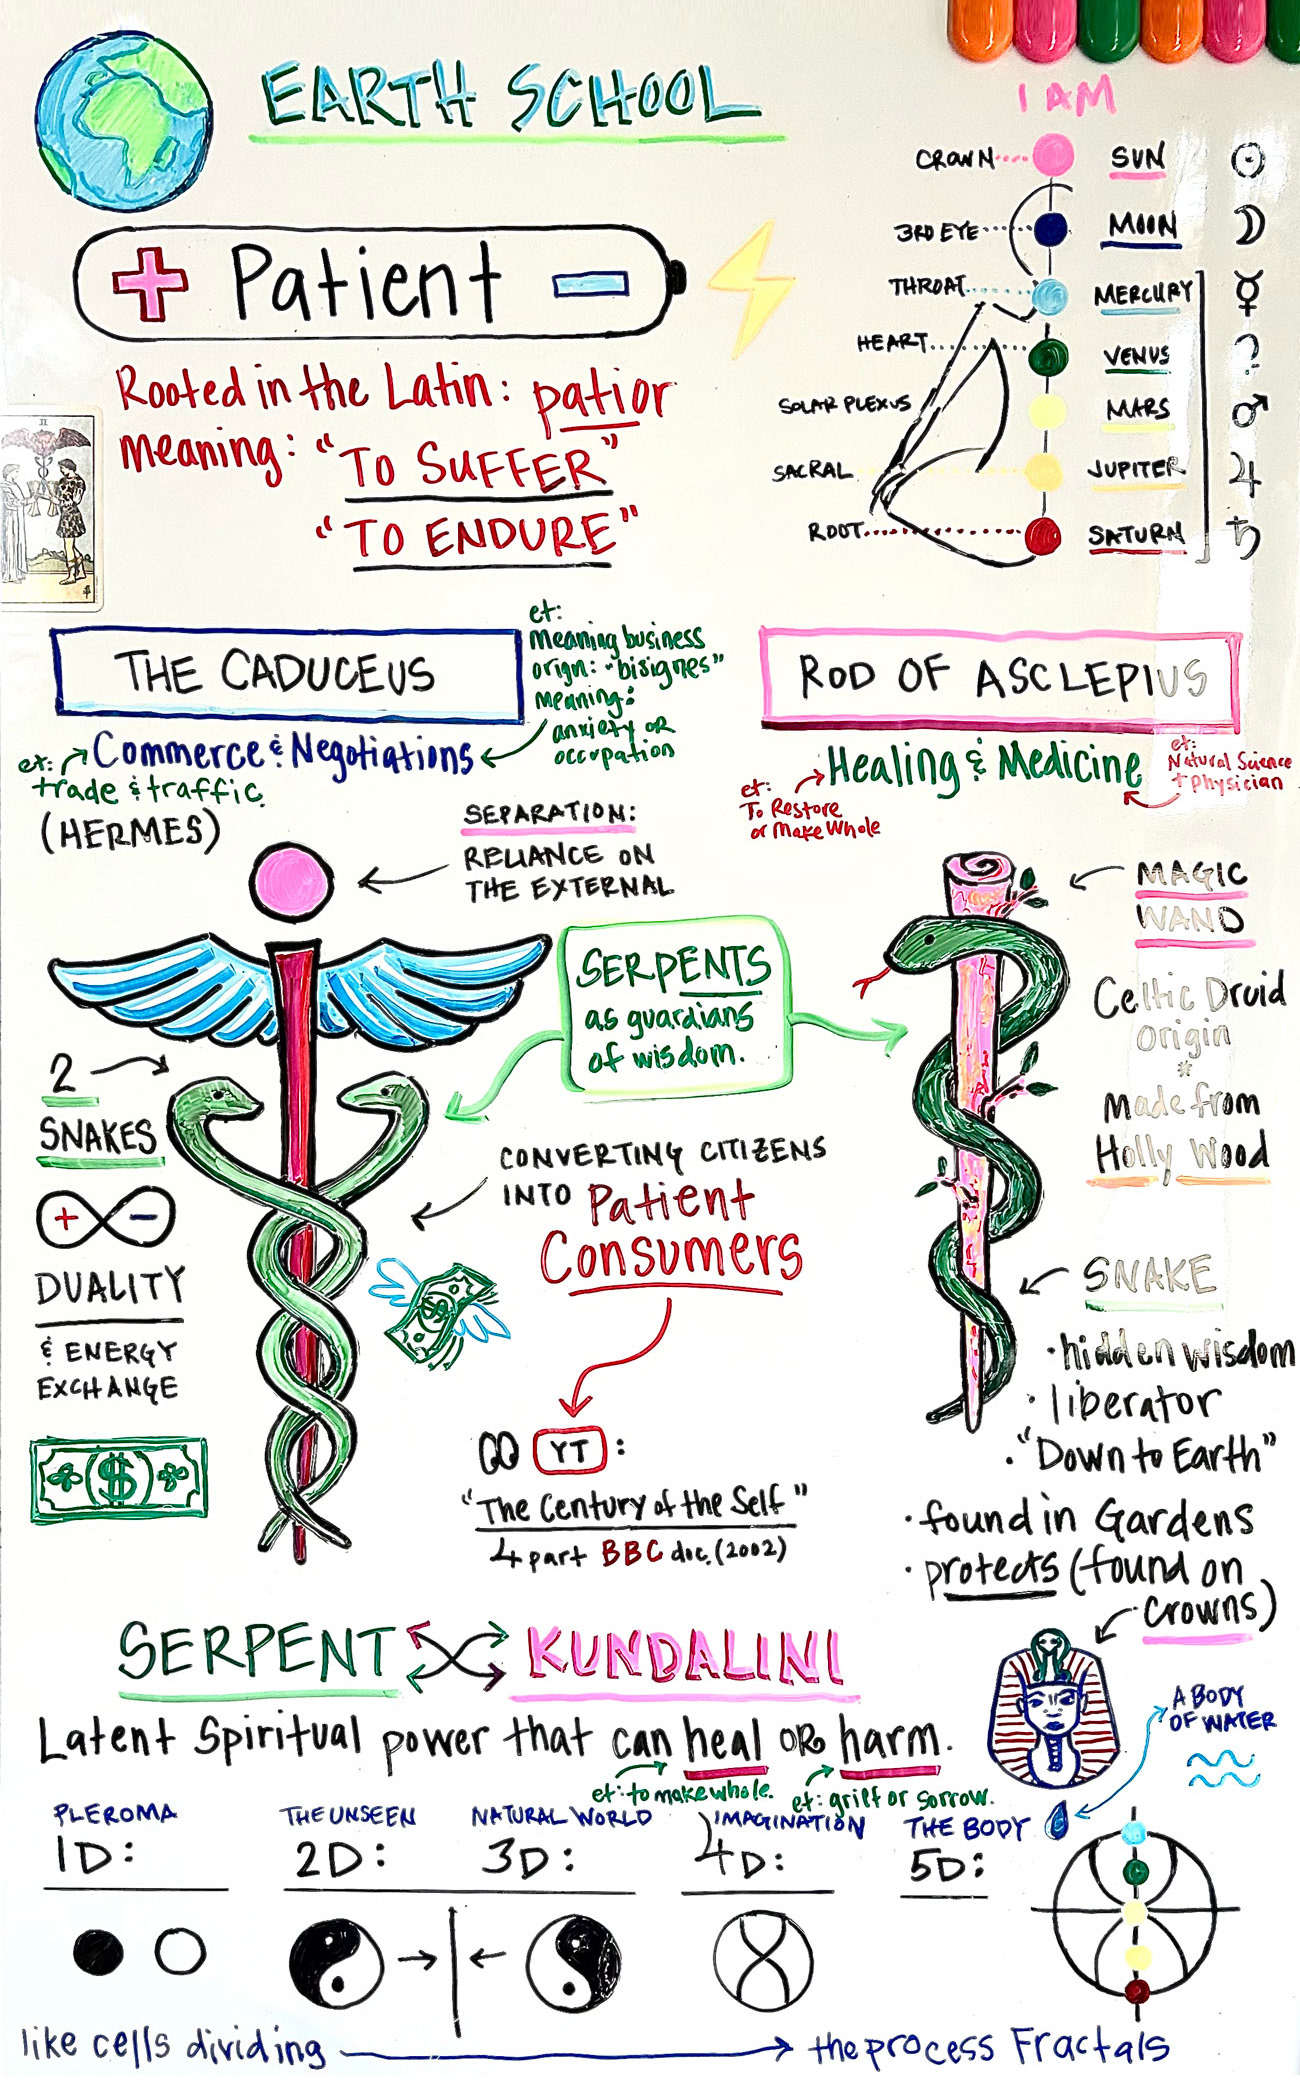 EARTH SCHOOL
I AM
CROWN SUN
3RD EYE MOON
THROAT MERCURY
HEART VENUS
SOLAR PLEXUS MARS
SACRAL JUPITER
ROOT SATURN
+ Patient -
Rooted in the Latin: patior
meaning: "TO SUFFER"
"TO ENDURE"
II
THE CADUCEUS
et:
meaning business
orign: "bisignes"
meaning:
anxiety or
occupation
Commerce & Negotiations
et:
trade & traffic
(HERMES)
ROD OF ASCLEPIUS
Healing & Medicine
et:
Natural Science
+ physician
et:
To Restore
or Make Whole
SEPARATION:
RELIANCE ON
THE EXTERNAL
SERPENTS
as guardians
of wisdom.
2
SNAKES
+ -
DUALITY
& ENERGY
EXCHANGE
($)
$
CONVERTING CITIZENS
INTO Patient
Consumers
YT:
"The Century of the Self"
4 part BBC doc. (2002)
MAGIC
WAND
Celtic Druid
origin
*
made from
Holly Wood
SNAKE
• hidden wisdom
• liberator
• "Down to Earth"
• found in Gardens
• protects (found on
crowns)
SERPENT KUNDALINI
Latent Spiritual power that can heal OR harm.
et: to make whole. et: grief or sorrow.
A BODY
OF WATER
PLEROMA THE UNSEEN NATURAL WORLD IMAGINATION THE BODY
1D: 2D: 3D: 4D: 5D:
like cells dividing the process Fractals